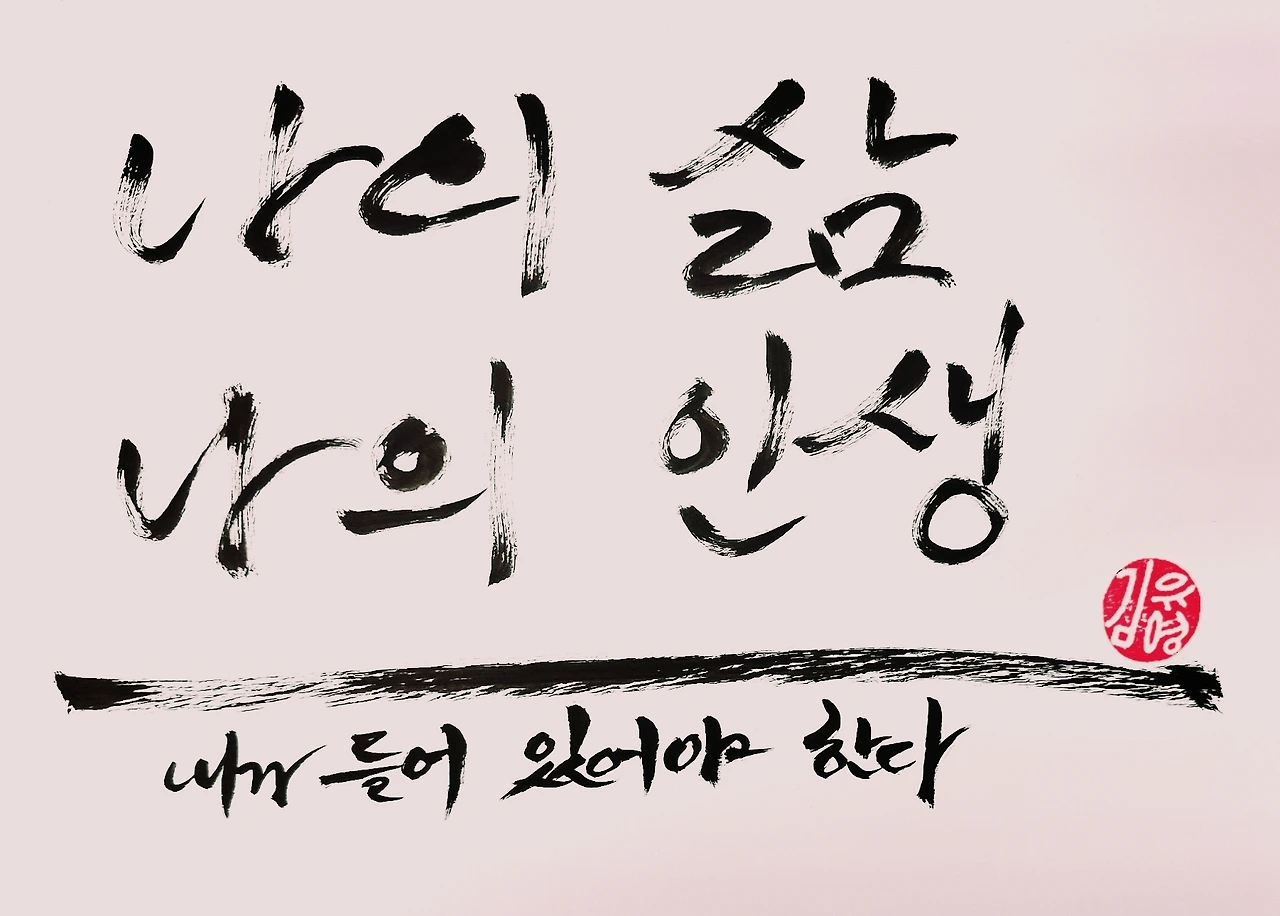 나의 삶
나의 인생
김유영
내가 들어 있어야 한다